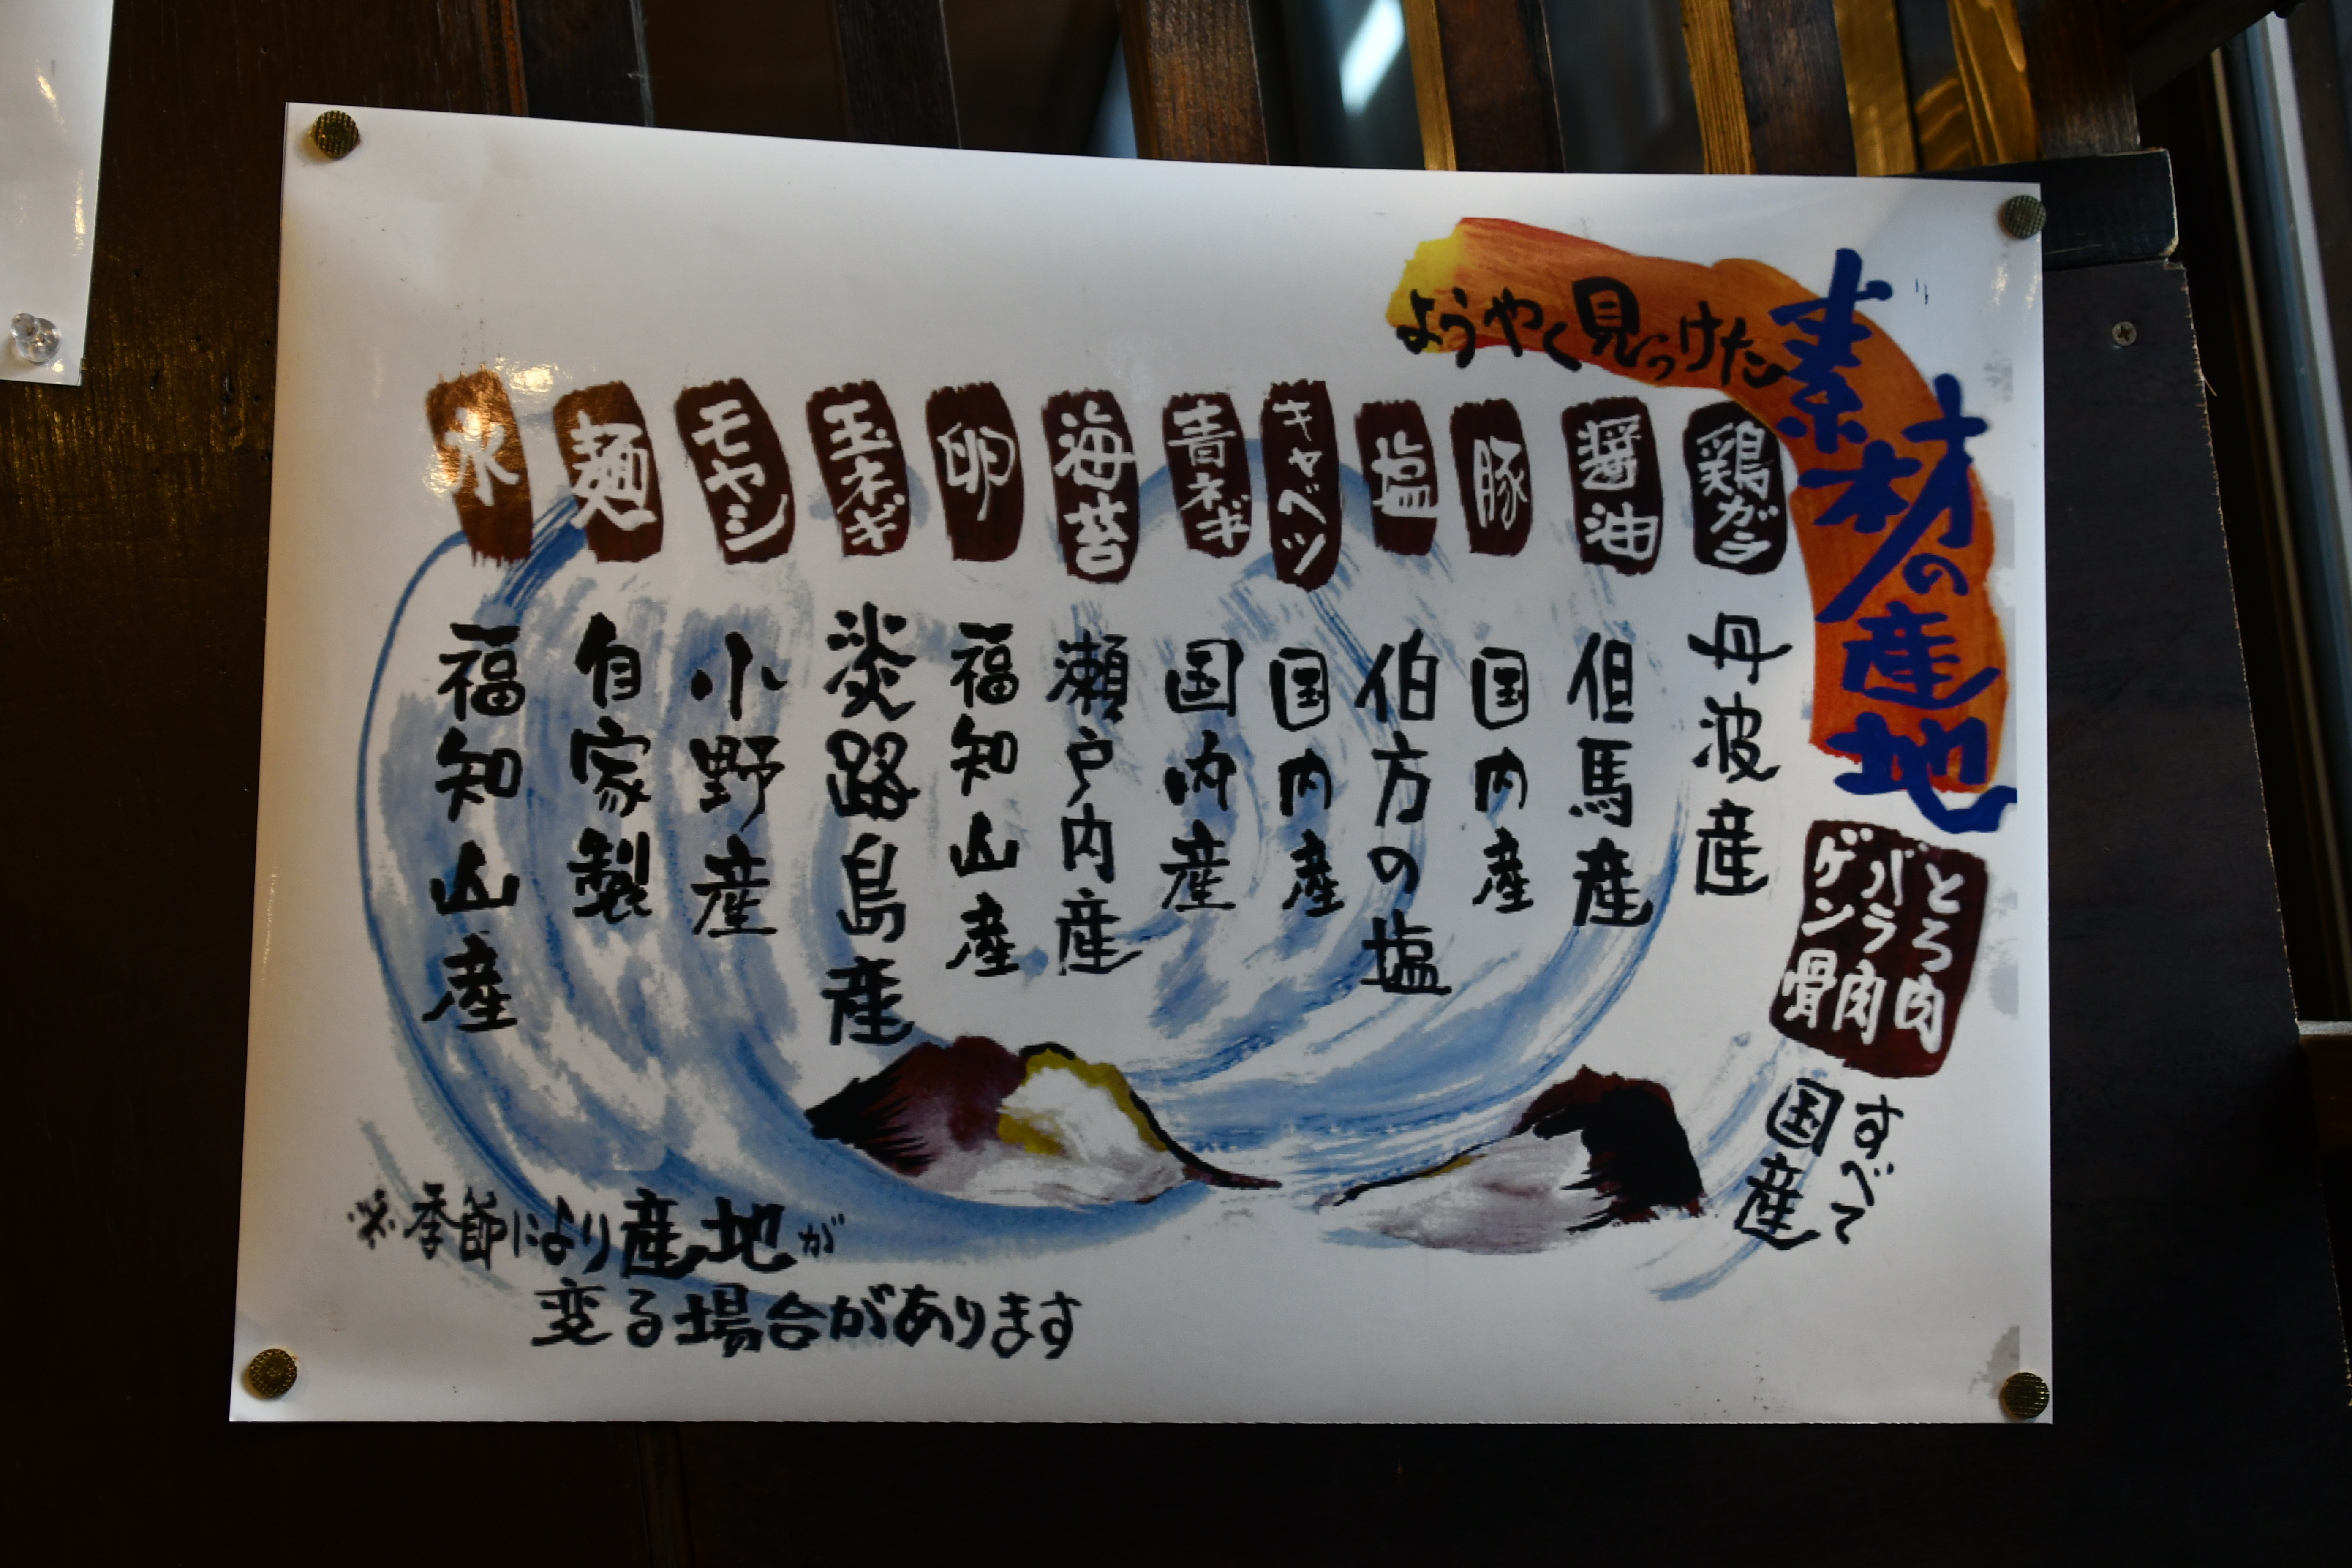 ようやく見つけた
素材の産地
とろ肉
バラ肉
ゲンコツ骨
すべて
国産
鶏ガラ 丹波産
醤油 但馬産
豚 国内産
塩 伯方の塩
キャベツ 国内産
青ネギ 国内産
海苔 瀬戸内産
卵 福知山産
玉ネギ 淡路島産
モヤシ 小野産
麺 自家製
水 福知山産
※季節により産地が
変る場合があります